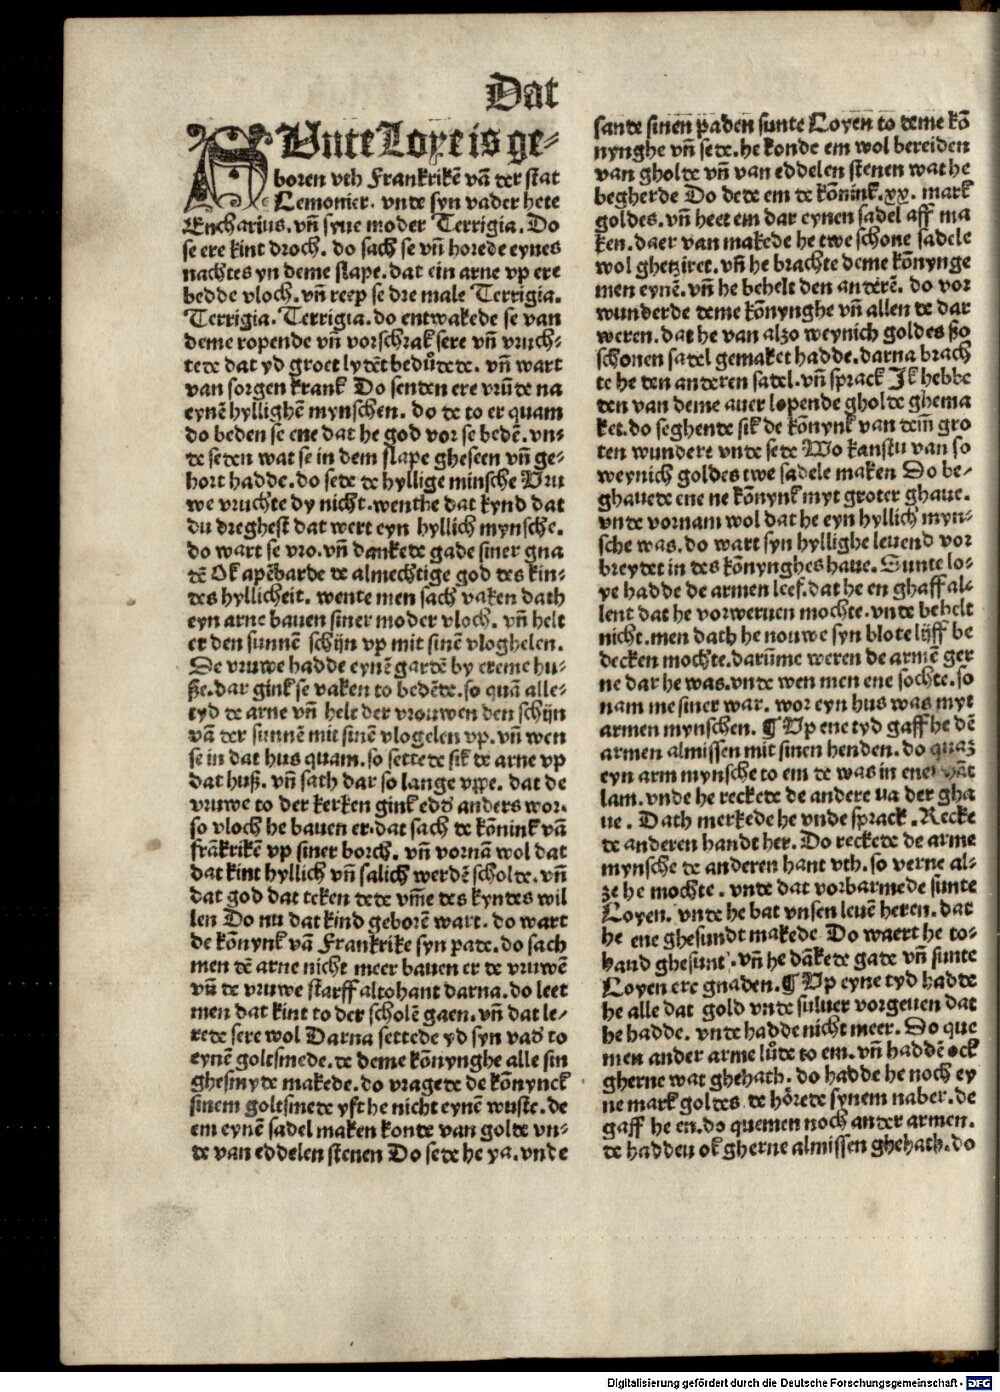 Dat
SUnte Loye is ge⸗
boren vth Frankrikē vā der stat
Lemonier. vnde syn vader hete
Encharius. vñ syne moder Terrigia. Do
se ere kint droch. do sach se vñ horede eynes
nachtes yn deme slape. dat ein arne vp ere
bedde vloch. vñ reep se dre male Terrigia.
Terrigia. Terrigia. do entwakede se van
deme ropende vñ vorschrak sere vñ vruch⸗
tede dat yd groet lydēt bedůdede. vñ wart
van sorgen krank Do senden ere vrūde na
eynē hyllighē mynschen. do de to er quam
do beden se ene dat he god vor se bedē. vn⸗
de seden wat se in dem slape gheseen vñ ge⸗
hort hadde. do sede de hyllige minsche Vru
we vruchte dy nicht. wenthe dat kynd dat
du dreghest dat wert eyn hyllich mynsche.
do wart se vro. vñ dankede gade siner gna
dē Ok apēbarde de almechtige god des kin⸗
des hyllicheit. wente men sach vaken dath
eyn arne bauen siner moder vloch. vñ helt
er den sunnē schijn vp mit sinē vloghelen.
De vruwe hadde eynē gardē by ereme hu⸗
ße. dar gink se vaken to bedēde. so quā alle⸗
tyd de arne vñ helt der vrouwen den schijn
vā der sunnē mit sinē vlogelen vp. vñ wen
se in dat hus quam. so settede sik de arne vp
dat huß. vñ sath dar so lange vppe. dat de
vruwe to der kerken gink edd' anders wor.
so vloch he bauen er. dat sach de kōnink vā
frākrikē vp siner borch. vñ vornā wol dat
dat kint hyllich vñ salich werdē scholde. vñ
dat god dat teken dede vm̄e des kyndes wil
len Do nu dat kind geborē wart. do wart
de kōnynk vā Frankrike syn pade. do sach
men dē arne nicht meer bauen er de vruwē
vñ de vruwe starff altohant darna. do leet
men dat kint to der scholē gaen. vñ dat le⸗
rede sere wol Darna settede yd syn vad' to
eynē goltsmede. de deme kōnynghe alle sin
ghesmyde makede. do vragede de kōnynck
sinem goltsmede yft he nicht eynē wuste. de
em eynē sadel maken konde van golde vn⸗
de van eddelen stenen Do sede he ya. vnde
sande sinen paden sunte Loyen to deme kō
nynghe vñ sede. he konde em wol bereiden
van gholde vñ van eddelen stenen wat he
begherde Do dede em de kōnink. xx. mark
goldes. vñ heet em dar eynen sadel aff ma
ken. daer van makede he twe schone sadele
wol ghetziret. vñ he brachte deme kōnynge
men eynē. vñ he behelt den anderē. do vor
wunderde deme kōnynghe vñ allen de dar
weren. dat he van alzo weynich goldes ßo
schonen sadel gemaket hadde. darna brach
te he den anderen sadel. vñ sprack Jk hebbe
den van deme auer lopende gholde ghema
ket. do seghende sik de kōnynk van dem̄ gro
ten wundere vnde sede Wo kanstu van so
weynich goldes twe sadele maken Do be⸗
ghauede ene ne kōnynk myt groter ghaue.
vnde vornam wol dat he eyn hyllich myn⸗
sche was. do wart syn hyllighe leuend vor
breydet in des kōnynghes haue. Sunte lo⸗
ye hadde de armen leef. dat he en ghaff al⸗
lent dat he vorweruen mochte. vnde behelt
nicht. men dath he nouwe syn blote lijff be
decken mochte. darūme weren de armē ger
ne dar he was. vnde wen men ene sochte. so
nam me siner war. wor eyn hus was myt
armen mynschen. ¶ Vp ene tyd gaff he dē
armen almissen mit sinen henden. do quaz
eyn arm mynsche to em de was in ener hāt
lam. vnde he reckede de andere na der gha
ue. Dath merkede he vnde sprack. Recke
de anderen handt her. Do reckede de arme
mynsche de anderen hant vth. so verne al⸗
ze he mochte. vnde dat vorbarmede sunte
Loyen. vnde he bat vnsen leuē heren. dat
he ene ghesundt makede Do waert he to⸗
hand ghesunt. vñ he dākede gade vñ sunte
Loyen ere gnaden. ¶ Vp eyne tyd hadde
he alle dat gold vnde suluer vorgeuen dat
he hadde. vnde hadde nicht meer. Do que
men ander arme lůde to em. vñ haddē ock
gherne wat ghehath. do hadde he noch ey
ne mark goldes. de hörede synem naber. de
gaff he en. do quemen noch ander armen.
de hadden ok gherne almissen ghehath. do
Digitalisierung gefördert durch die Deutsche Forschungsgemeinschaft - DFG